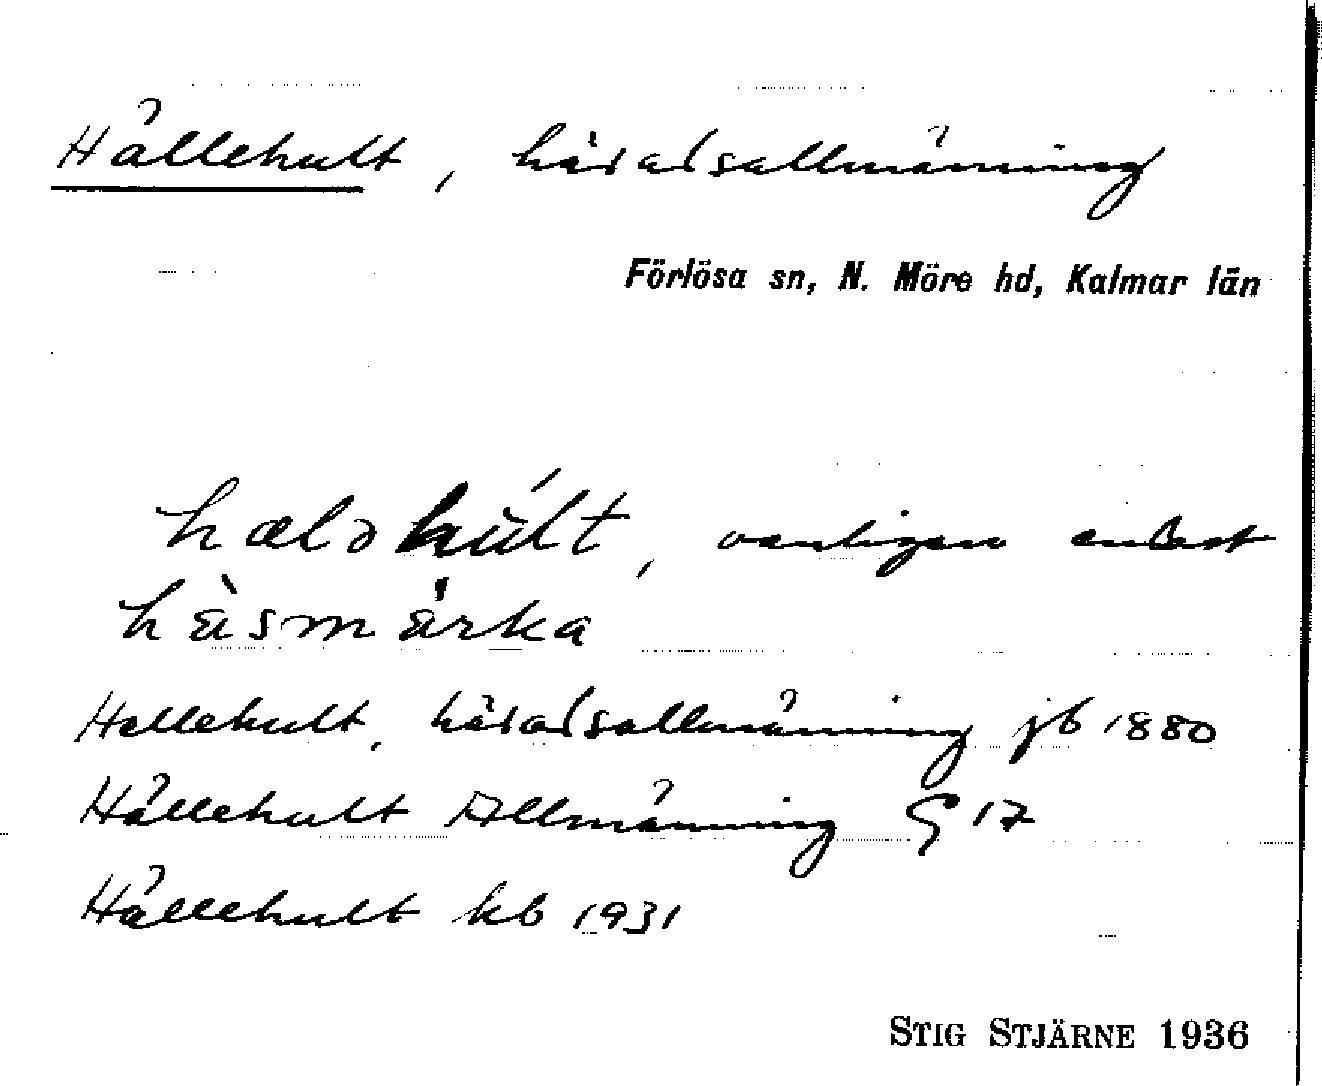 Hällehult, häradsallmänning
Förlösa sn, N. Möre hd, Kalmar län
hæləhúlt, vanligen endast
hä̀smä̀rka
Hellehult, häradsallmänning jb 1880
Hällehult Allmänning G 17
Hällehult kb 1931
STIG STJÄRNE 1936